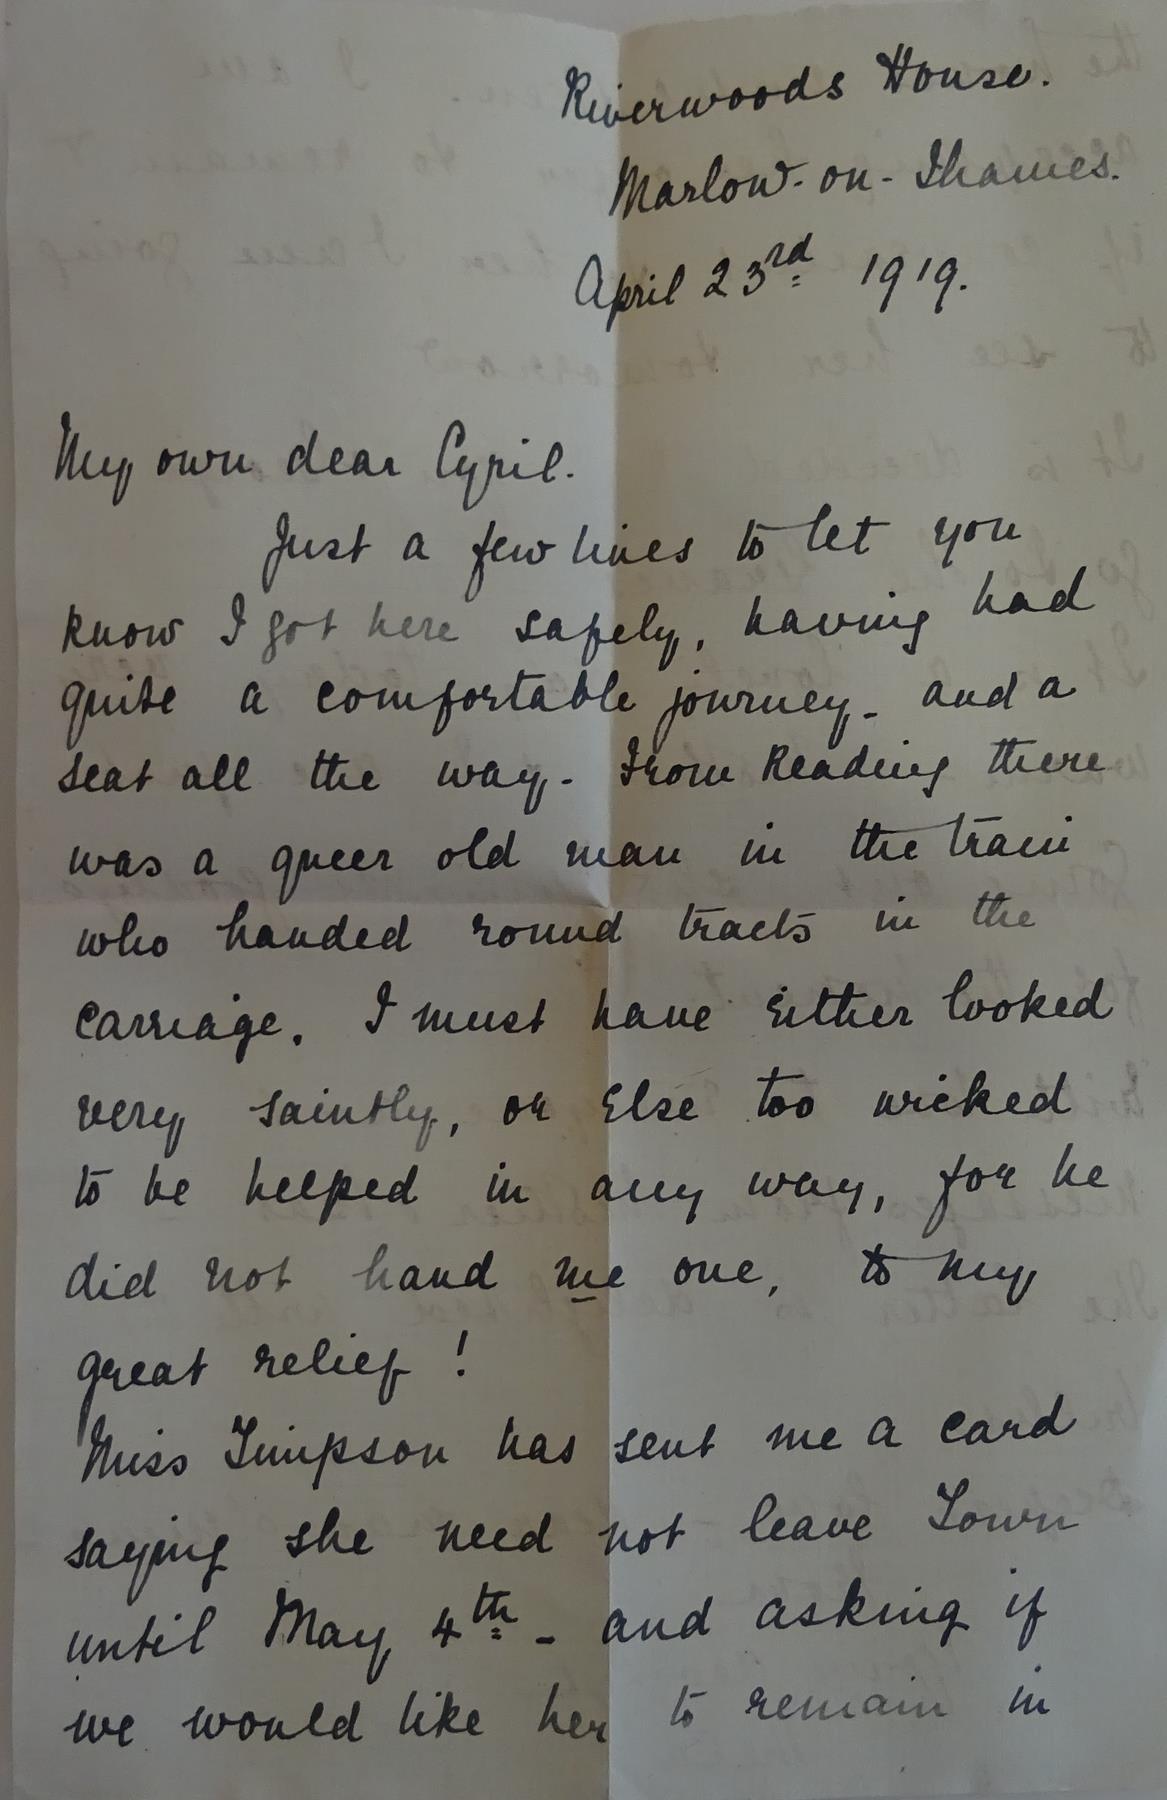 Riverwoods House.
Marlow-on-Thames.
April 23rd 1919.
My own dear Cyril.
Just a few lines to let you
know I got here safely, having had
quite a comfortable journey - and a
seat all the way - From Reading there
was a queer old man in the train
who handed round tracts in the
carriage. I must have either looked
very saintly, or else too wicked
to be helped in any way, for he
did not hand me one, to my
great relief!
Miss Timpson has sent me a card
saying she need not leave Town
until May 4th - and asking if
we would like her to remain in